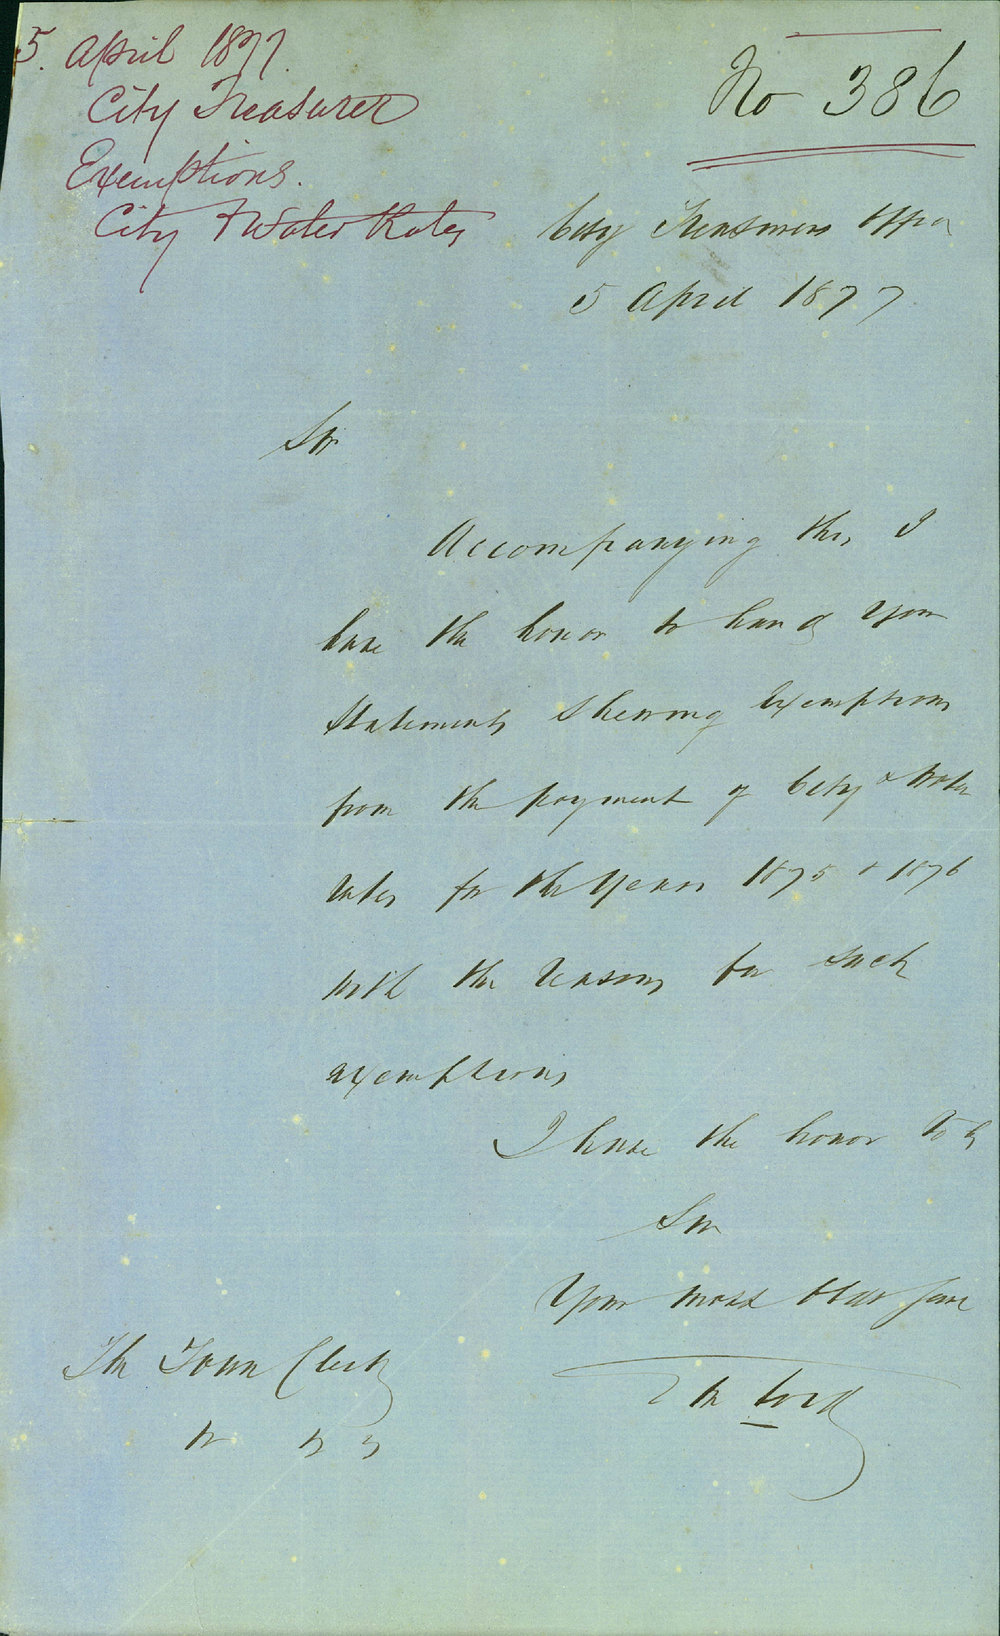 5. April 1877.
City Treasurer
Exemptions.
City & Water Rates
No 386
City Treasurers Office
5 April 1877
Sir
Accompanying this I
have the honor to hand you
Statements shewing Exemptions
from the payment of City & Water
rates for the Years 1875 & 1876
with the reasons for such
exemptions
I have the honor to be
Sir
Your most Obdt Serv
The Town Clerk